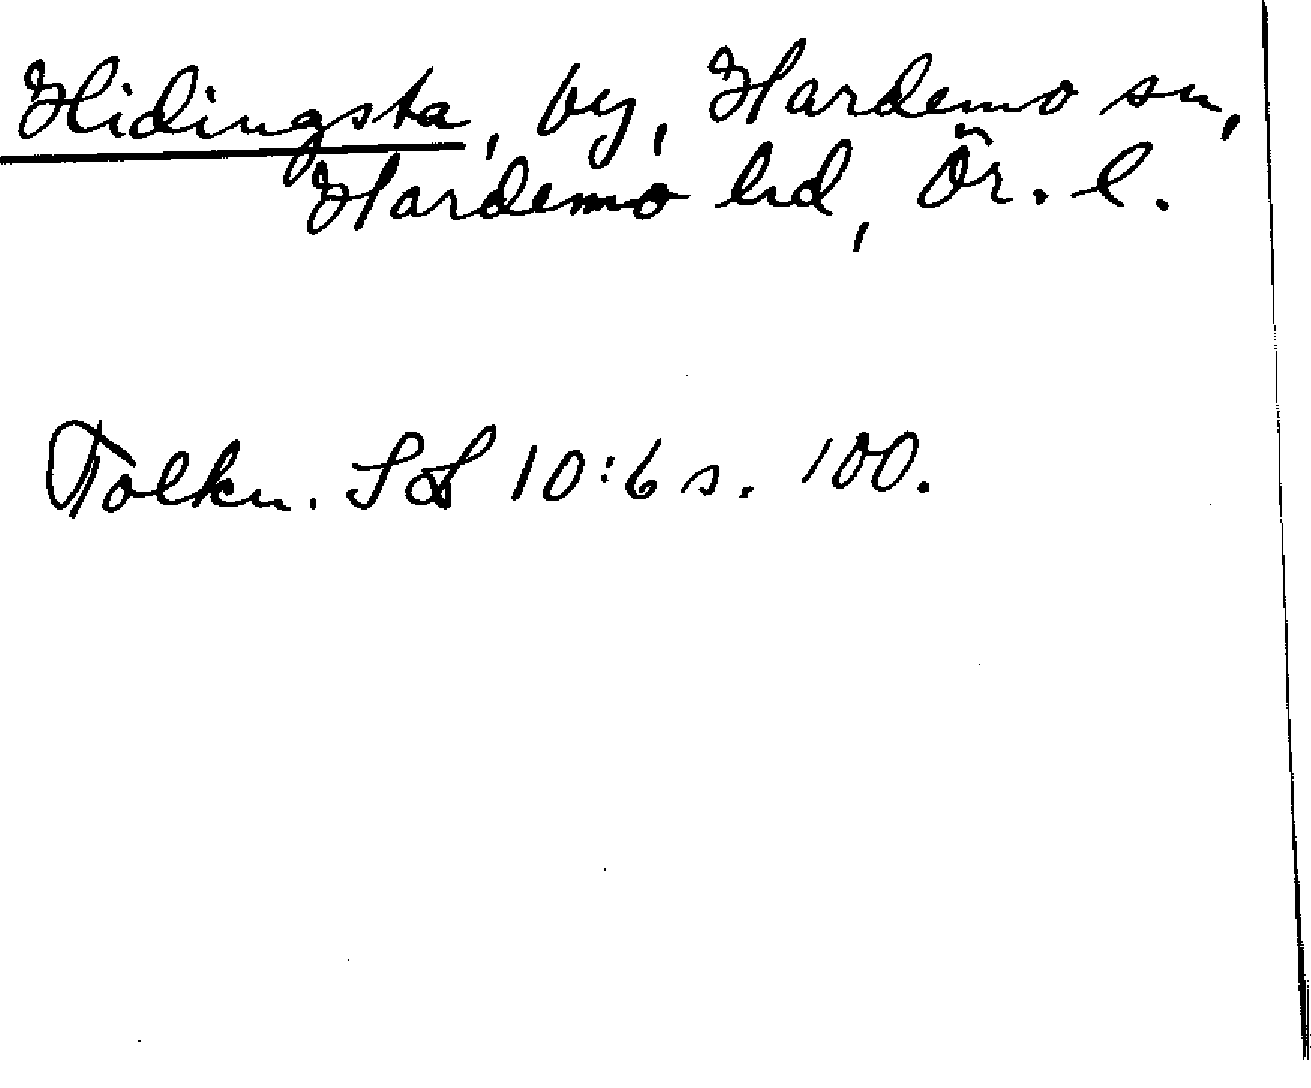 Hidingsta, by, Hardemo sn,
Hardemo hd, Ör. l.
Tolkn. SOL 10:6 s. 100.